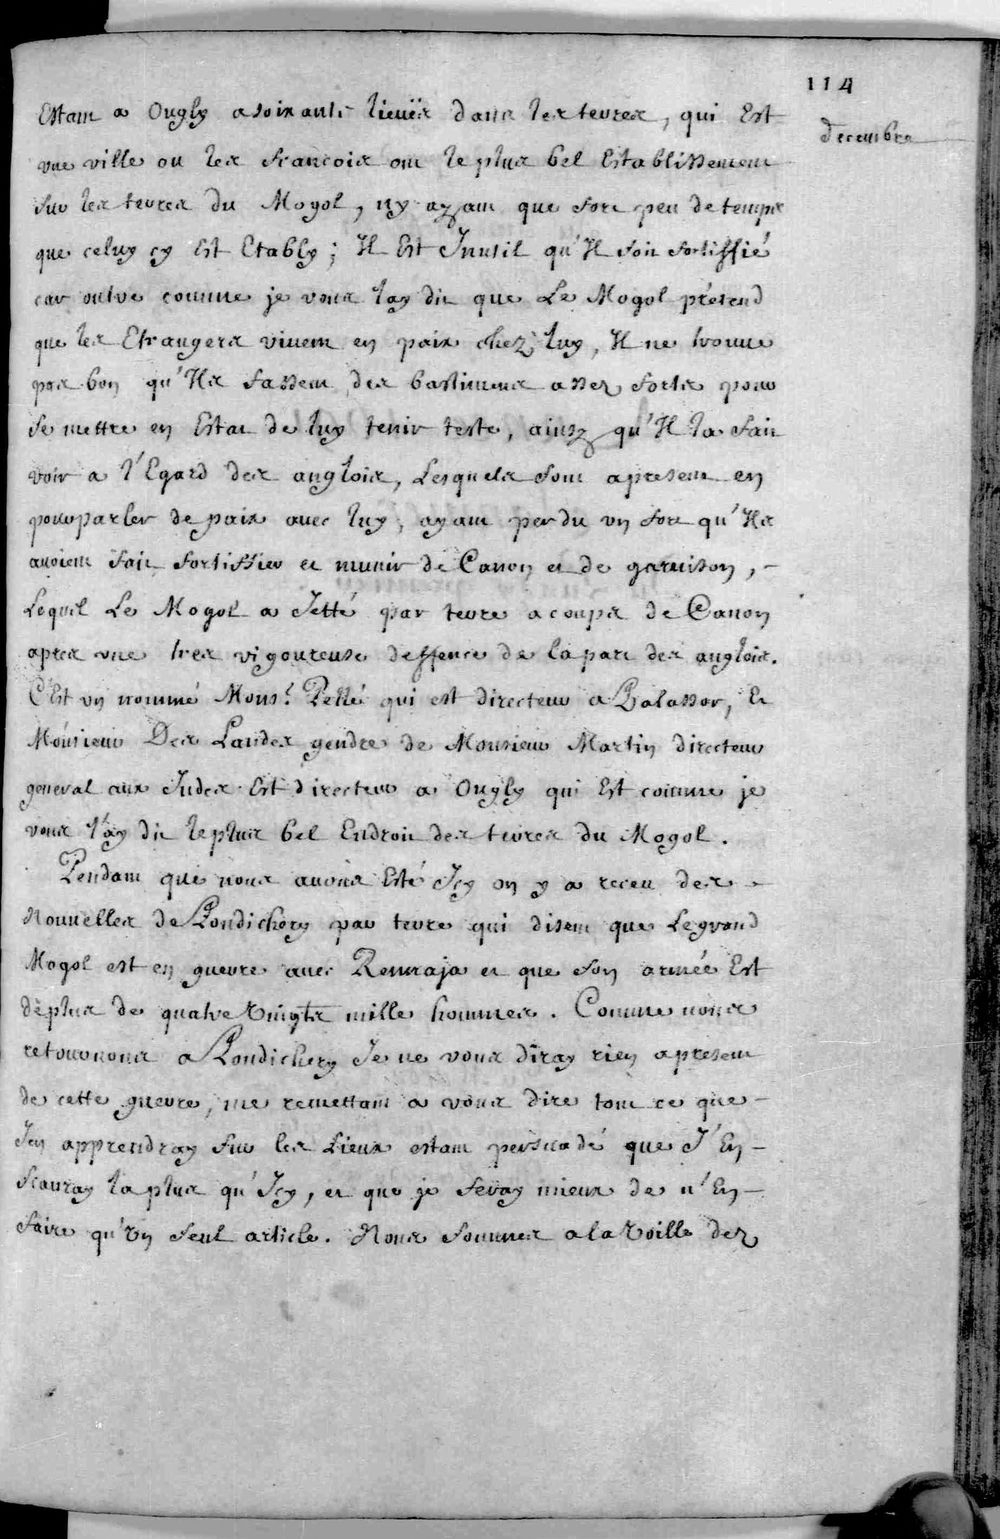 114
Decembre
Estant a Ougly a soixante lieües dans les terres, qui Est
vne ville ou les francois ont le plus bel Establissement
sur les terres du Mogol, ny ayant que fort peu de temps
que celuy cy Est Etably ; Il Est Inutil qu'Il soit fortiffié
car outre comme je vous lay dit que Le Mogol prétend
que les Etrangers vivent en paix chez luy, Il ne trouve
pas bon qu'Ils fassent des bastimens assez forts pour
se mettre en Estat de luy tenir teste, ainsy qu'Il la fait
voir a l'Egard des anglois, Lesquels sont apresent en
pourparler de paix avec luy, ayant perdu vn fort qu'Ils
avoient fait fortiffier et munir de Canon et de garnison, -
Lequel Le Mogol a Jetté par terre a coups de Canon
apres vne tres vigoureuse deffence de la part des anglois.
C'Est vn nommé Monsr. Pellé qui est directeur a Balassor, Et
Monsieur Des Landes gendre de Monsieur Martin directeur
general aux Indes Est directeur a Ougly qui Est comme je
vous l'ay dit le plus bel Endroit des terres du Mogol.
Pendant que nous avons Esté Icy on y a receu des -
Nouvelles de Pondichery par terre qui disent que Le grand
Mogol est en guerre avec Remraja et que son armée Est
de plus de quatre Vingts mille hommes. Comme nous
retournons a Pondichery Je ne vous diray rien apresent
de cette guerre, me remettant a vous dire tout ce que -
J'en apprendray sur les Lieux estant persuadé que J'En -
scauray la plus qu'Icy, et que je feray mieux de n'En -
faire qu'Vn seul article. Nous sommes a la Veille des